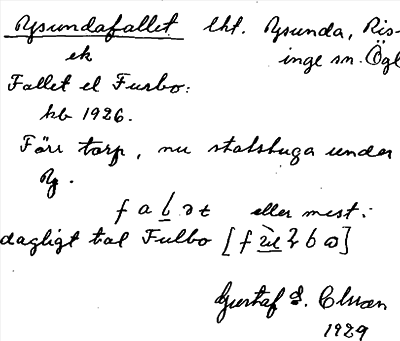 Rysundafallet lht. Rysunda, Ris-
ek inge sn. Ögl
Fallet el Furbo:
hb 1926.
Förr torp, nu statstuga under
Ry.
f a l ə t eller mest i
dagligt tal Fulbo
Gustaf
1929